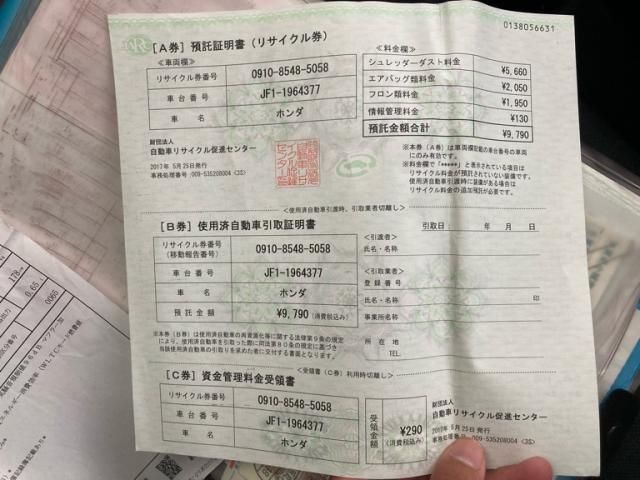 0138056631
[A券] 預託証明書(リサイクル券)
≪車両欄≫
リサイクル券番号 0910-8548-5058
車台番号 JF1-1964377
車名 ホンダ
≪料金欄≫
シュレッダーダスト料金 ¥5,660
エアバッグ類料金 ¥2,050
フロン類料金 ¥1,950
情報管理料金 ¥130
預託金額合計 ¥9,790
財団法人
自動車リサイクル促進センター
2017年 5月25日発行
事務処理番号:009-535208004 <3S>
※本券(A券)は車両欄記載の車台番号の車両
にのみ有効です。
※料金欄で「*****」と表示されている項目は
リサイクル料金が預託されていない装備です。
使用済自動車引渡時に装備がある場合は
リサイクル料金の追加預託が必要です。
<使用済自動車引渡時、引取業者切離し>
[B券] 使用済自動車引取証明書
引取日: 年 月 日
リサイクル券番号
(移動報告番号) 0910-8548-5058
車台番号 JF1-1964377
車名 ホンダ
預託金額 ¥9,790 (消費税込み)
<引渡者>
氏名・名称
<引取業者>
登録番号
氏名・名称 印
事業所名称
所在地
TEL.
※本券(B券)は使用済自動車の再資源化等に関する法律第9条の規定
により、使用済自動車を引取った際に同法第80条の規定に基づき
当該使用済自動車の引取りを求めた者に交付する書面となります。
<受領書(C券)利用時切離し>
[C券] 資金管理料金受領書
リサイクル券番号 0910-8548-5058
車台番号 JF1-1964377
車名 ホンダ
受領金額 ¥290 (消費税込み)
財団法人
自動車リサイクル促進センター
2017年 5月25日発行
事務処理番号:009-535208004 <3S>
178
0.65
0065